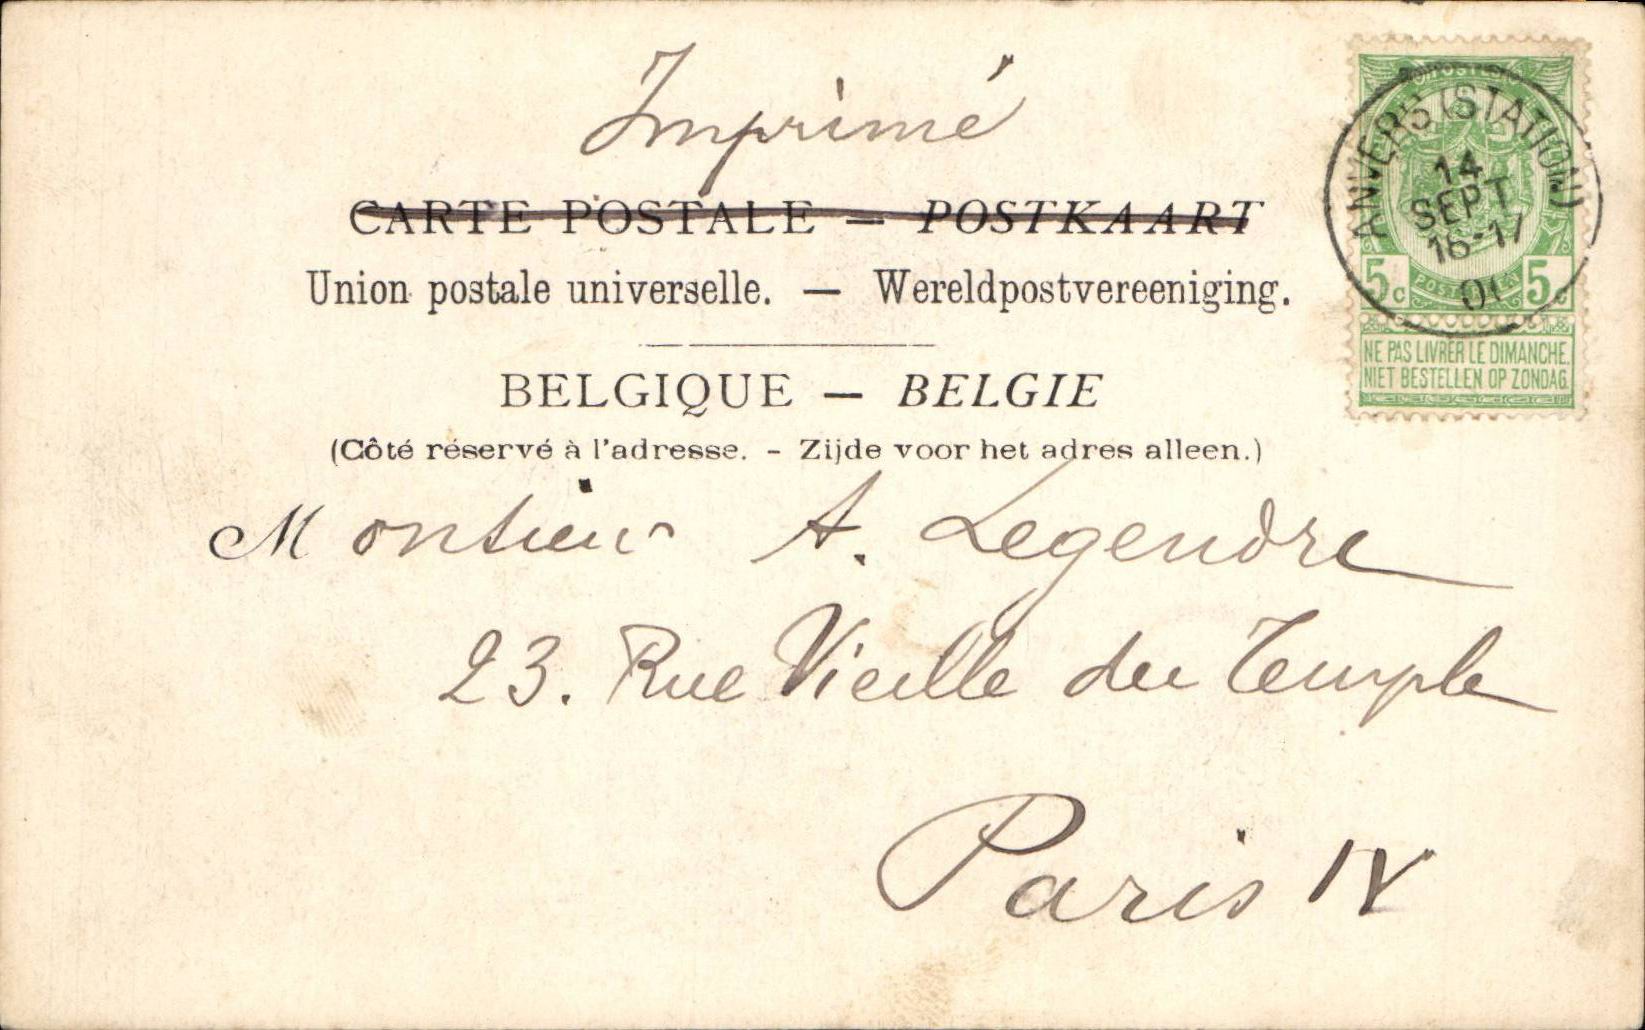 Imprimé
CARTE POSTALE — POSTKAART
Union postale universelle. — Wereldpostvereeniging.
BELGIQUE — BELGIE
(Côté réservé à l'adresse. - Zijde voor het adres alleen.)
Monsieur A. Legendre
23. Rue Vieille du Temple
Paris IV
ANVERS (STATION)
14
SEPT
16-17
5c 5c
NE PAS LIVRER LE DIMANCHE.
NIET BESTELLEN OP ZONDAG.